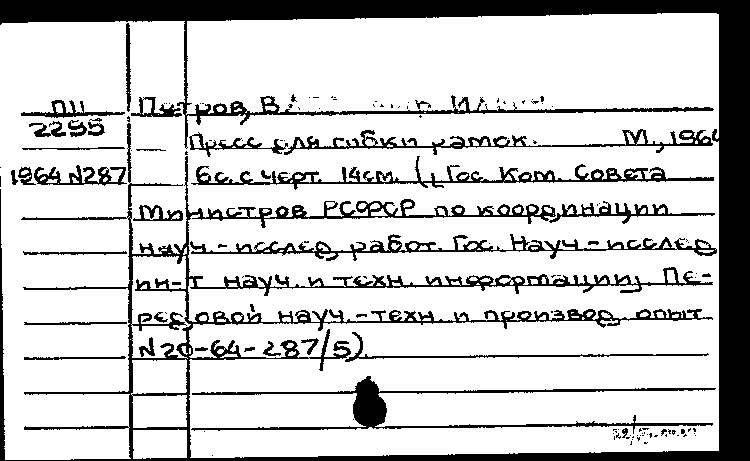 ПИ Петров, В
2295 Пресс для гибки рамок. М., 1964
1964 N287 6с. с черт. 14см. (Гос. Ком. Совета
Министров РСФСР по координации
науч.-исслед. работ. Гос. Науч.-исслед.
ин-т науч. и техн. информации. Пе-
редовой науч.-техн. и производ. опыт
N20-64-287/5).